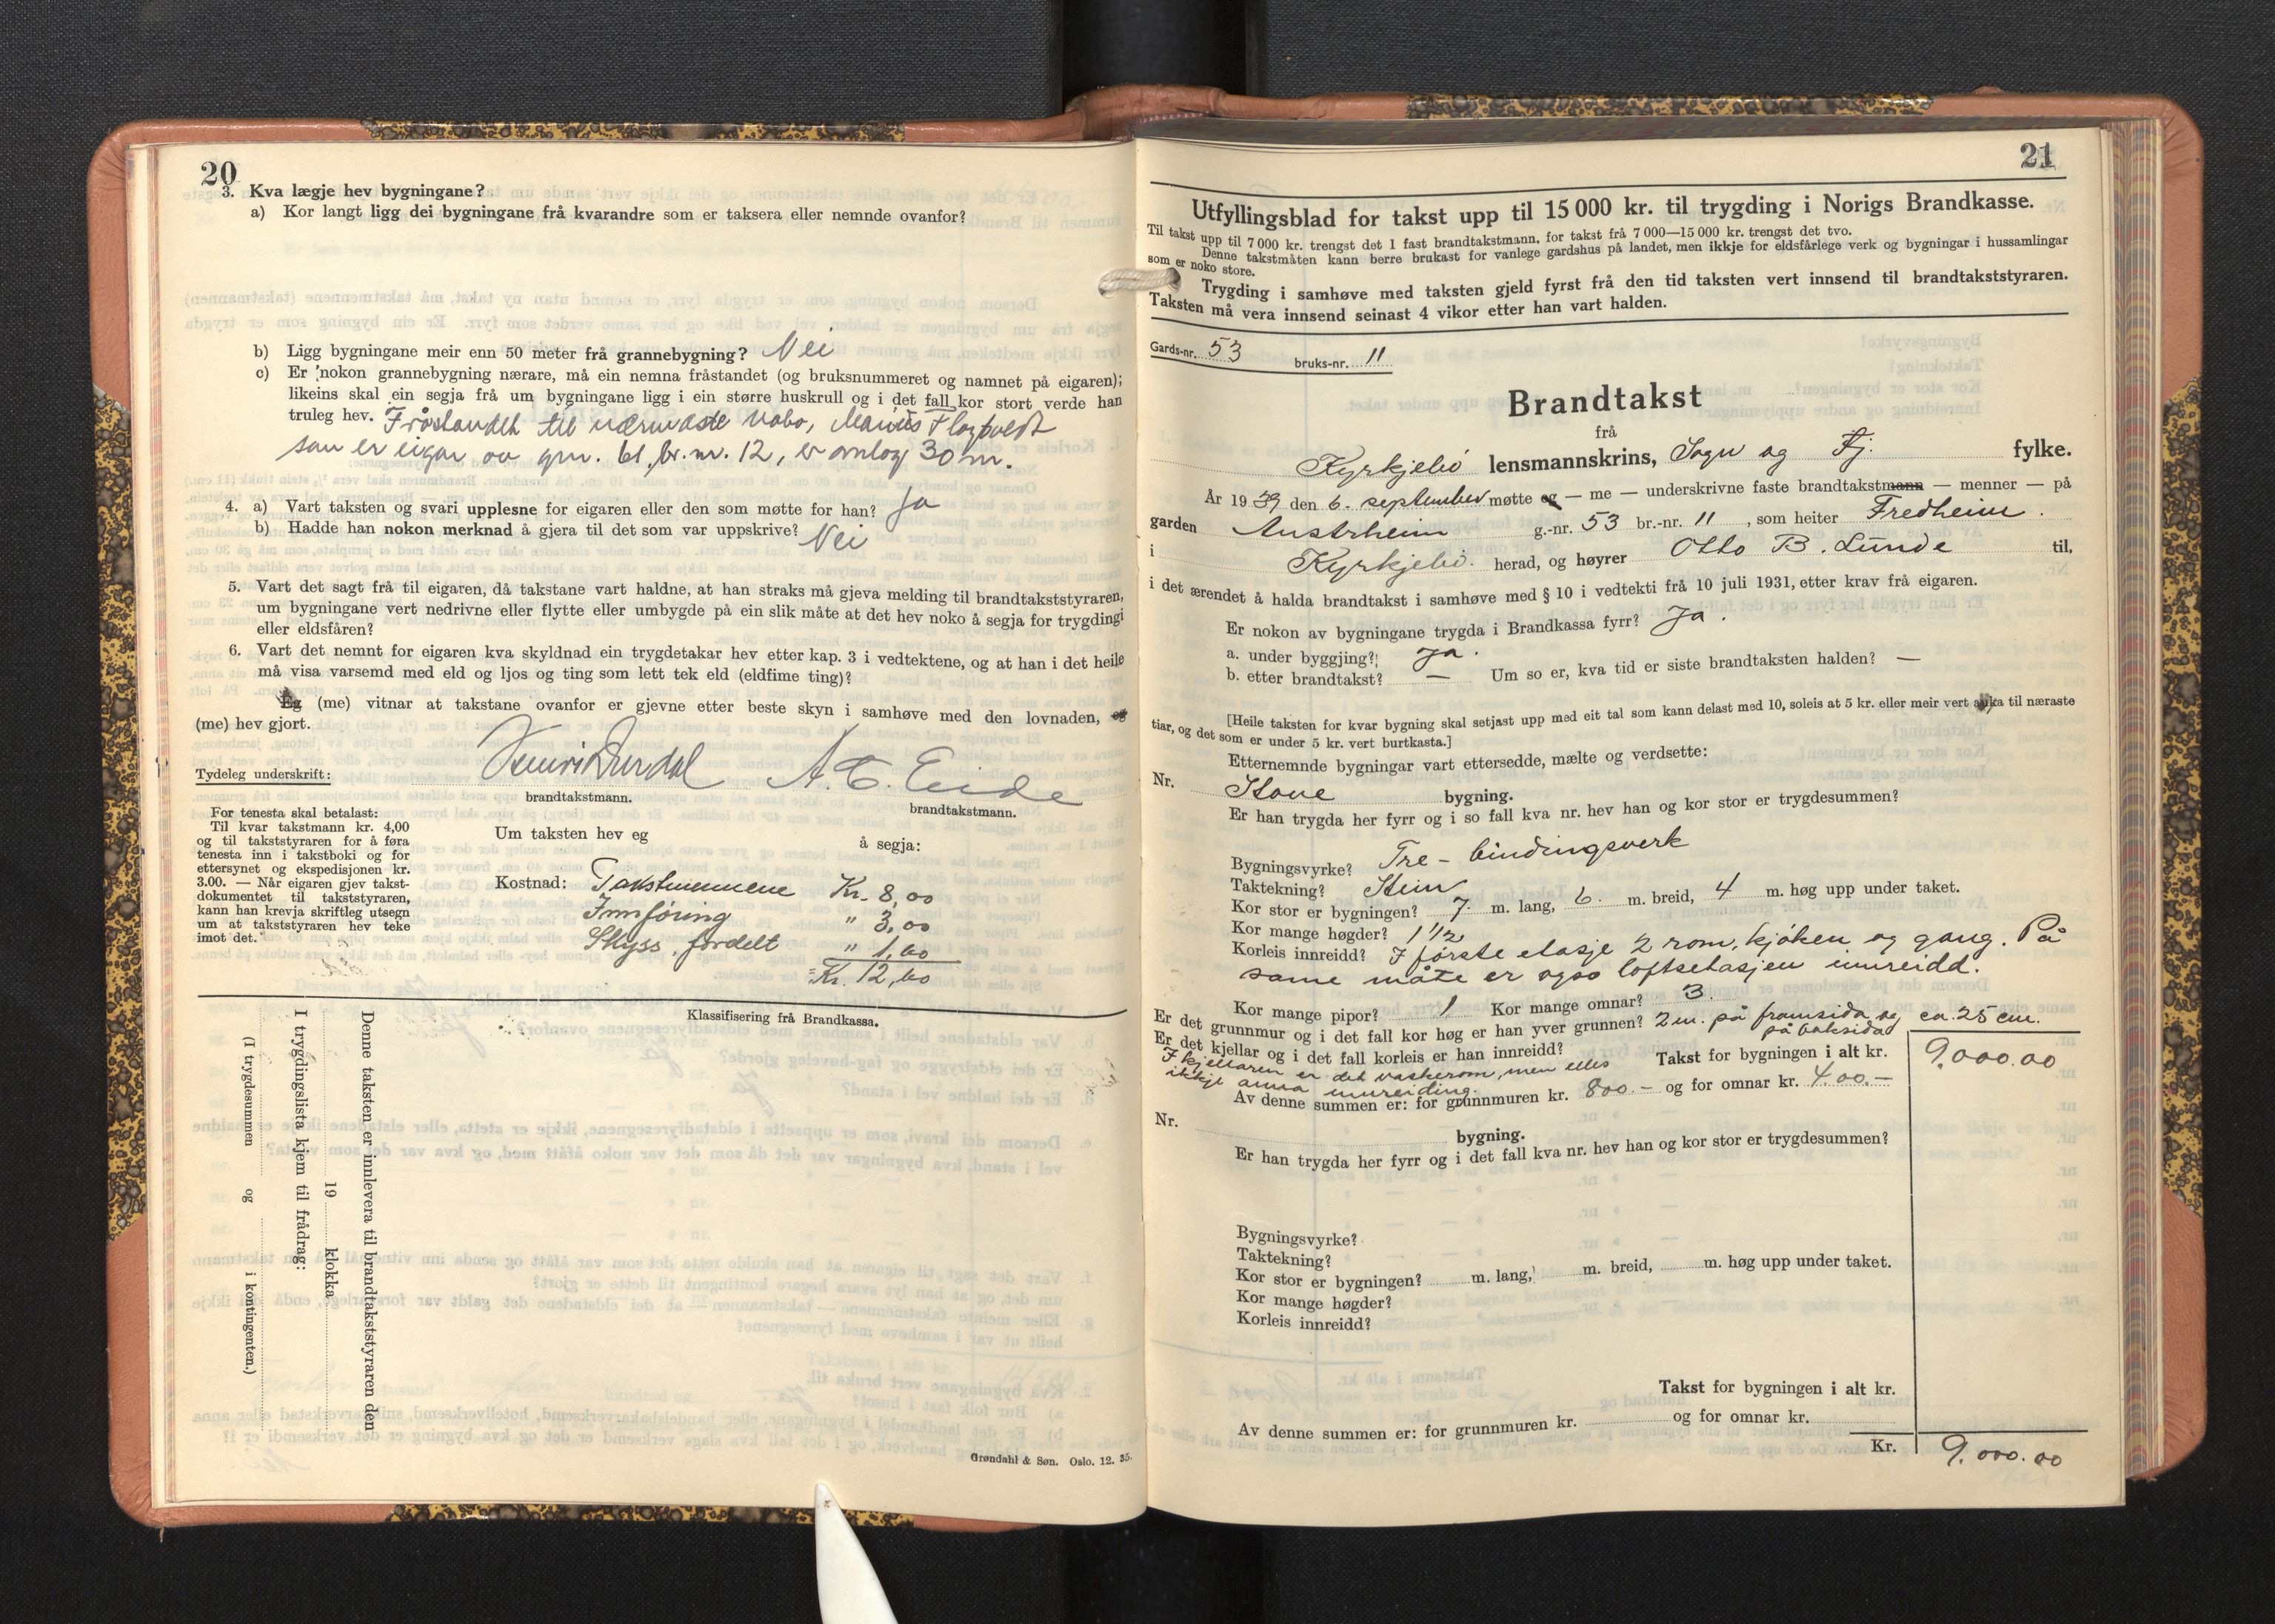 20
3. Kva lægje hev bygningane?
a) Kor langt ligg dei bygningane frå kvarandre som er taksera eller nemnde ovanfor?
b) Ligg bygningane meir enn 50 meter frå grannebygning? Nei
c) Er nokon grannebygning nærare, må ein nemna fråstandet (og bruksnummeret og namnet på eigaren);
likeins skal ein segja frå um bygningane ligg i ein større huskrull og i det fall kor stort verde han
truleg hev. Fråstandet til nærmaste nabo, Marius
som er eigar av gnr. 61, br. nr. 12, er omlag 30 m.
4. a) Vart taksten og svari upplesne for eigaren eller den som møtte for han? Ja
b) Hadde han nokon merknad å gjera til det som var uppskrive? Nei
5. Vart det sagt frå til eigaren, då takstane vart haldne, at han straks må gjeva melding til brandtakststyraren,
um bygningane vert nedrivne eller flytte eller umbygde på ein slik måte at det hev noko å segja for trygdingi
eller eldsfåren?
6. Vart det nemnt for eigaren kva skyldnad ein trygdetakar hev etter kap. 3 i vedtektene, og at han i det heile
må visa varsemd med eld og ljos og ting som lett tek eld (eldfime ting)?
Eg (me) vitnar at takstane ovanfor er gjevne etter beste skyn i samhøve med den lovnaden, eg
(me) hev gjort.
Tydeleg underskrift:
A. E. Eide
brandtakstmann.
brandtakstmann.
For tenesta skal betalast:
Til kvar takstmann kr. 4,00
og til takststyraren for å føra
tenesta inn i takstboki og for
ettersynet og ekspedisjonen kr.
3.00. — Når eigaren gjev takst-
dokumentet til takststyraren,
kann han krevja skriftleg utsegn
um at takststyraren hev teke
imot det.
Um taksten hev eg å segja:
Kostnad: Takstmennene Kr. 8,00
Innføring " 3,00
Skyss, fordelt " 1,60
Kr. 12,60
Klassifisering frå Brandkassa.
Denne taksten er innlevera til brandtakststyraren den
19 klokka
I trygdingslista kjem til frådrag:
(I trygdesummen og i kontingenten.)
Grøndahl & Søn. Oslo. 12. 35.
21
Utfyllingsblad for takst upp til 15 000 kr. til trygding i Norigs Brandkasse.
Til takst upp til 7 000 kr. trengst det 1 fast brandtakstmann, for takst frå 7 000—15 000 kr. trengst det tvo.
Denne takstmåten kann berre brukast for vanlege gardshus på landet, men ikkje for eldsfårlege verk og bygningar i hussamlingar
som er noko store.
Trygding i samhøve med taksten gjeld fyrst frå den tid taksten vert innsend til brandtakststyraren.
Taksten må vera innsend seinast 4 vikor etter han vart halden.
Gards-nr. 53 bruks-nr. 11
Brandtakst
frå
Kyrkjebø lensmannskrins, Sogn og Fj. fylke.
År 1939 den 6. september møtte eg — me — underskrivne faste brandtakstmann — menner — på
garden Austrheim g.-nr. 53 br.-nr. 11, som heiter Fredheim.
i Kyrkjebø. herad, og høyrer Otto B. Lunde til,
i det ærendet å halda brandtakst i samhøve med § 10 i vedtekti frå 10 juli 1931, etter krav frå eigaren.
Er nokon av bygningane trygda i Brandkassa fyrr? Ja.
a. under byggjing? Ja.
b. etter brandtakst? — Um so er, kva tid er siste brandtaksten halden? —
[Heile taksten for kvar bygning skal setjast upp med eit tal som kann delast med 10, soleis at 5 kr. eller meir vert auka til næraste
tiar, og det som er under 5 kr. vert burtkasta.]
Etternemnde bygningar vart ettersedde, mælte og verdsette:
Nr. Stove bygning.
Er han trygda her fyrr og i so fall kva nr. hev han og kor stor er trygdesummen?
Bygningsvyrke? Tre - bindingsverk
Taktekning? Stein
Kor stor er bygningen? 7 m. lang, 6. m. breid, 4 m. høg upp under taket.
Kor mange høgder? 1 1/2
Korleis innreidd? I første etasje 2 rom, kjøken og gang. På
same måte er ogso loftsetasjen innreidd.
Kor mange pipor? 1 Kor mange omnar? 3.
Er det grunnmur og i det fall kor høg er han yver grunnen? 2 m. på framsida og ca. 25 cm.
på baksida
Er det kjellar og i det fall korleis er han innreidd?
I kjellaren er det vaskerom, men elles
ikkje anna innreiding.
Takst for bygningen i alt kr. 9.000.00
Av denne summen er: for grunnmuren kr. 800.- og for omnar kr. 400.-
Nr. bygning.
Er han trygda her fyrr og i det fall kva nr. hev han og kor stor er trygdesummen?
Bygningsvyrke?
Taktekning?
Kor stor er bygningen? m. lang, m. breid, m. høg upp under taket.
Kor mange høgder?
Korleis innreidd?
Takst for bygningen i alt kr.
Av denne summen er: for grunnmuren kr. og for omnar kr.
Kr. 9.000.00